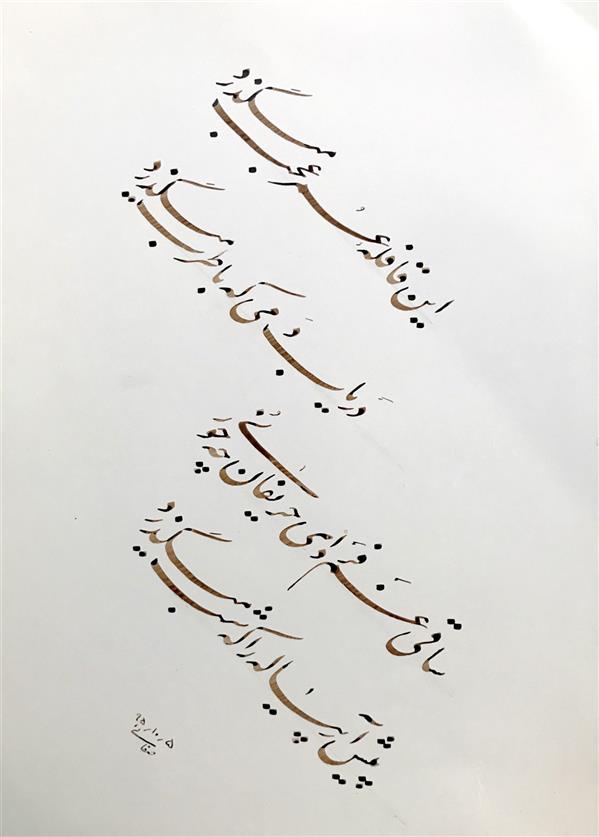 این قافله عمر عجب میگذرد
دریاب دمی که با طرب میگذرد
ساقی غم فردای حریفان چه خوری
پیش آر پیاله را که شب میگذرد
۹۵/۱۰/۵